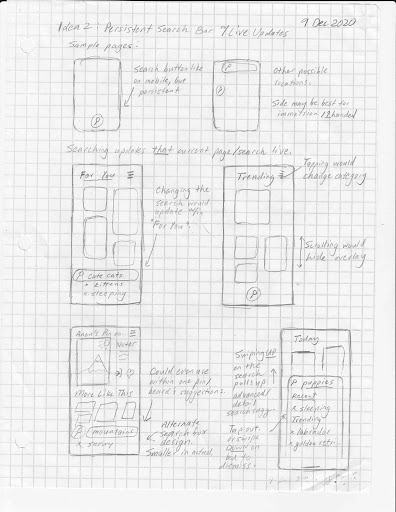 9 Dec 2020
Idea 2: Persistent Search Bar w/ Live Updates
Sample pages.
Search button like
on mobile, but
persistent
Other possible
locations.
Side may be best for
immersion /2handed
Searching updates that current page/search live.
For You
Changing the
search would
update w/in
"For You".
cute cats
x kittens
x sleeping
Trending
Tapping would
change category
Scrolling would
hide overlay
Anon's Pin on
Notes
More Like This
mountains
x snowy
Could even are
within one pin/
board's suggestions.
Alternate
search box
design.
Smaller in actual.
Swiping UP
on the
search
pulls up
advanced/
detail
search sugg.
Tap out
or swipe
Down on
bar to
dismiss.
Today
puppies
Recent
x sleeping
Trending
x labrador
x golden retr.